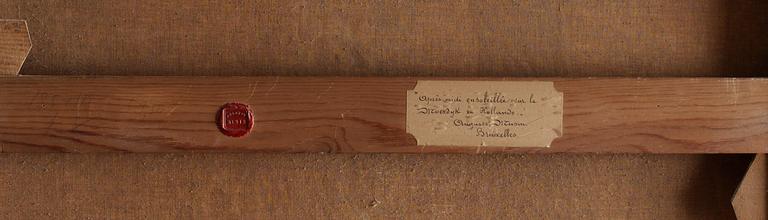 Après-midi ensoleillée sur le
Moerdyk en Hollande.
Auguste Musin
Bruxelles